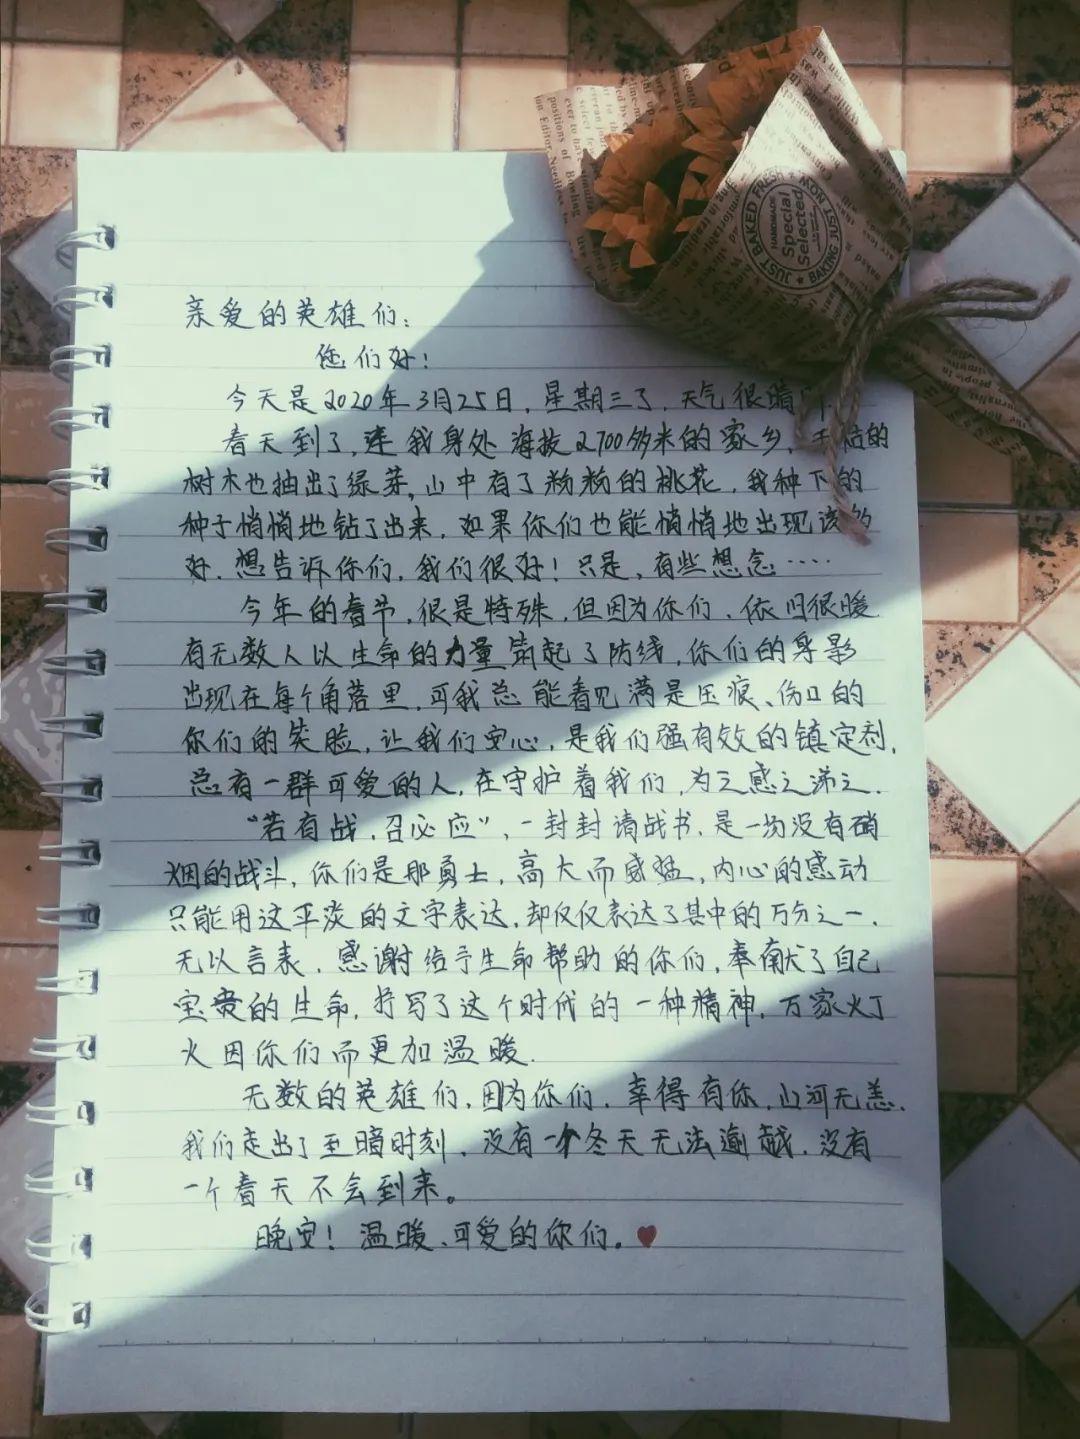 亲爱的英雄们:
您们好!
今天是2020年3月25日,星期三了,天气很晴
春天到了,连我身处海拔2700多米的家乡,干枯的
树木也抽出了绿芽,山中有了粉粉的桃花,我种下的
种子悄悄地钻了出来,如果你们也能悄悄地出现该多
好.想告诉你们,我们很好!只是,有些想念……
今年的春节,很是特殊,但因为你们,依旧很暖
有无数人以生命的力量筑起了防线,你们的身影
出现在每个角落里,可我总能看见满是压痕、伤口的
你们的笑脸,让我们安心,是我们强有效的镇定剂,
总有一群可爱的人,在守护着我们,为之感之涕之.
“若有战,召必应”,一封封请战书,是一场没有硝
烟的战斗,你们是那勇士,高大而威猛,内心的感动
只能用这平淡的文字表达,却仅仅表达了其中的万分之一,
无以言表,感谢给予生命帮助的你们,奉献了自己
宝贵的生命,抒写了这个时代的一种精神,万家灯
火因你们而更加温暖.
无数的英雄们,因为你们,幸得有你,山河无恙.
我们走出了至暗时刻,没有一个冬天无法逾越,没有
一个春天不会到来。
晚安!温暖、可爱的你们。
JUST BAKED FRESH
HANDMADE
Special
Selected
BAKING JUST NOW